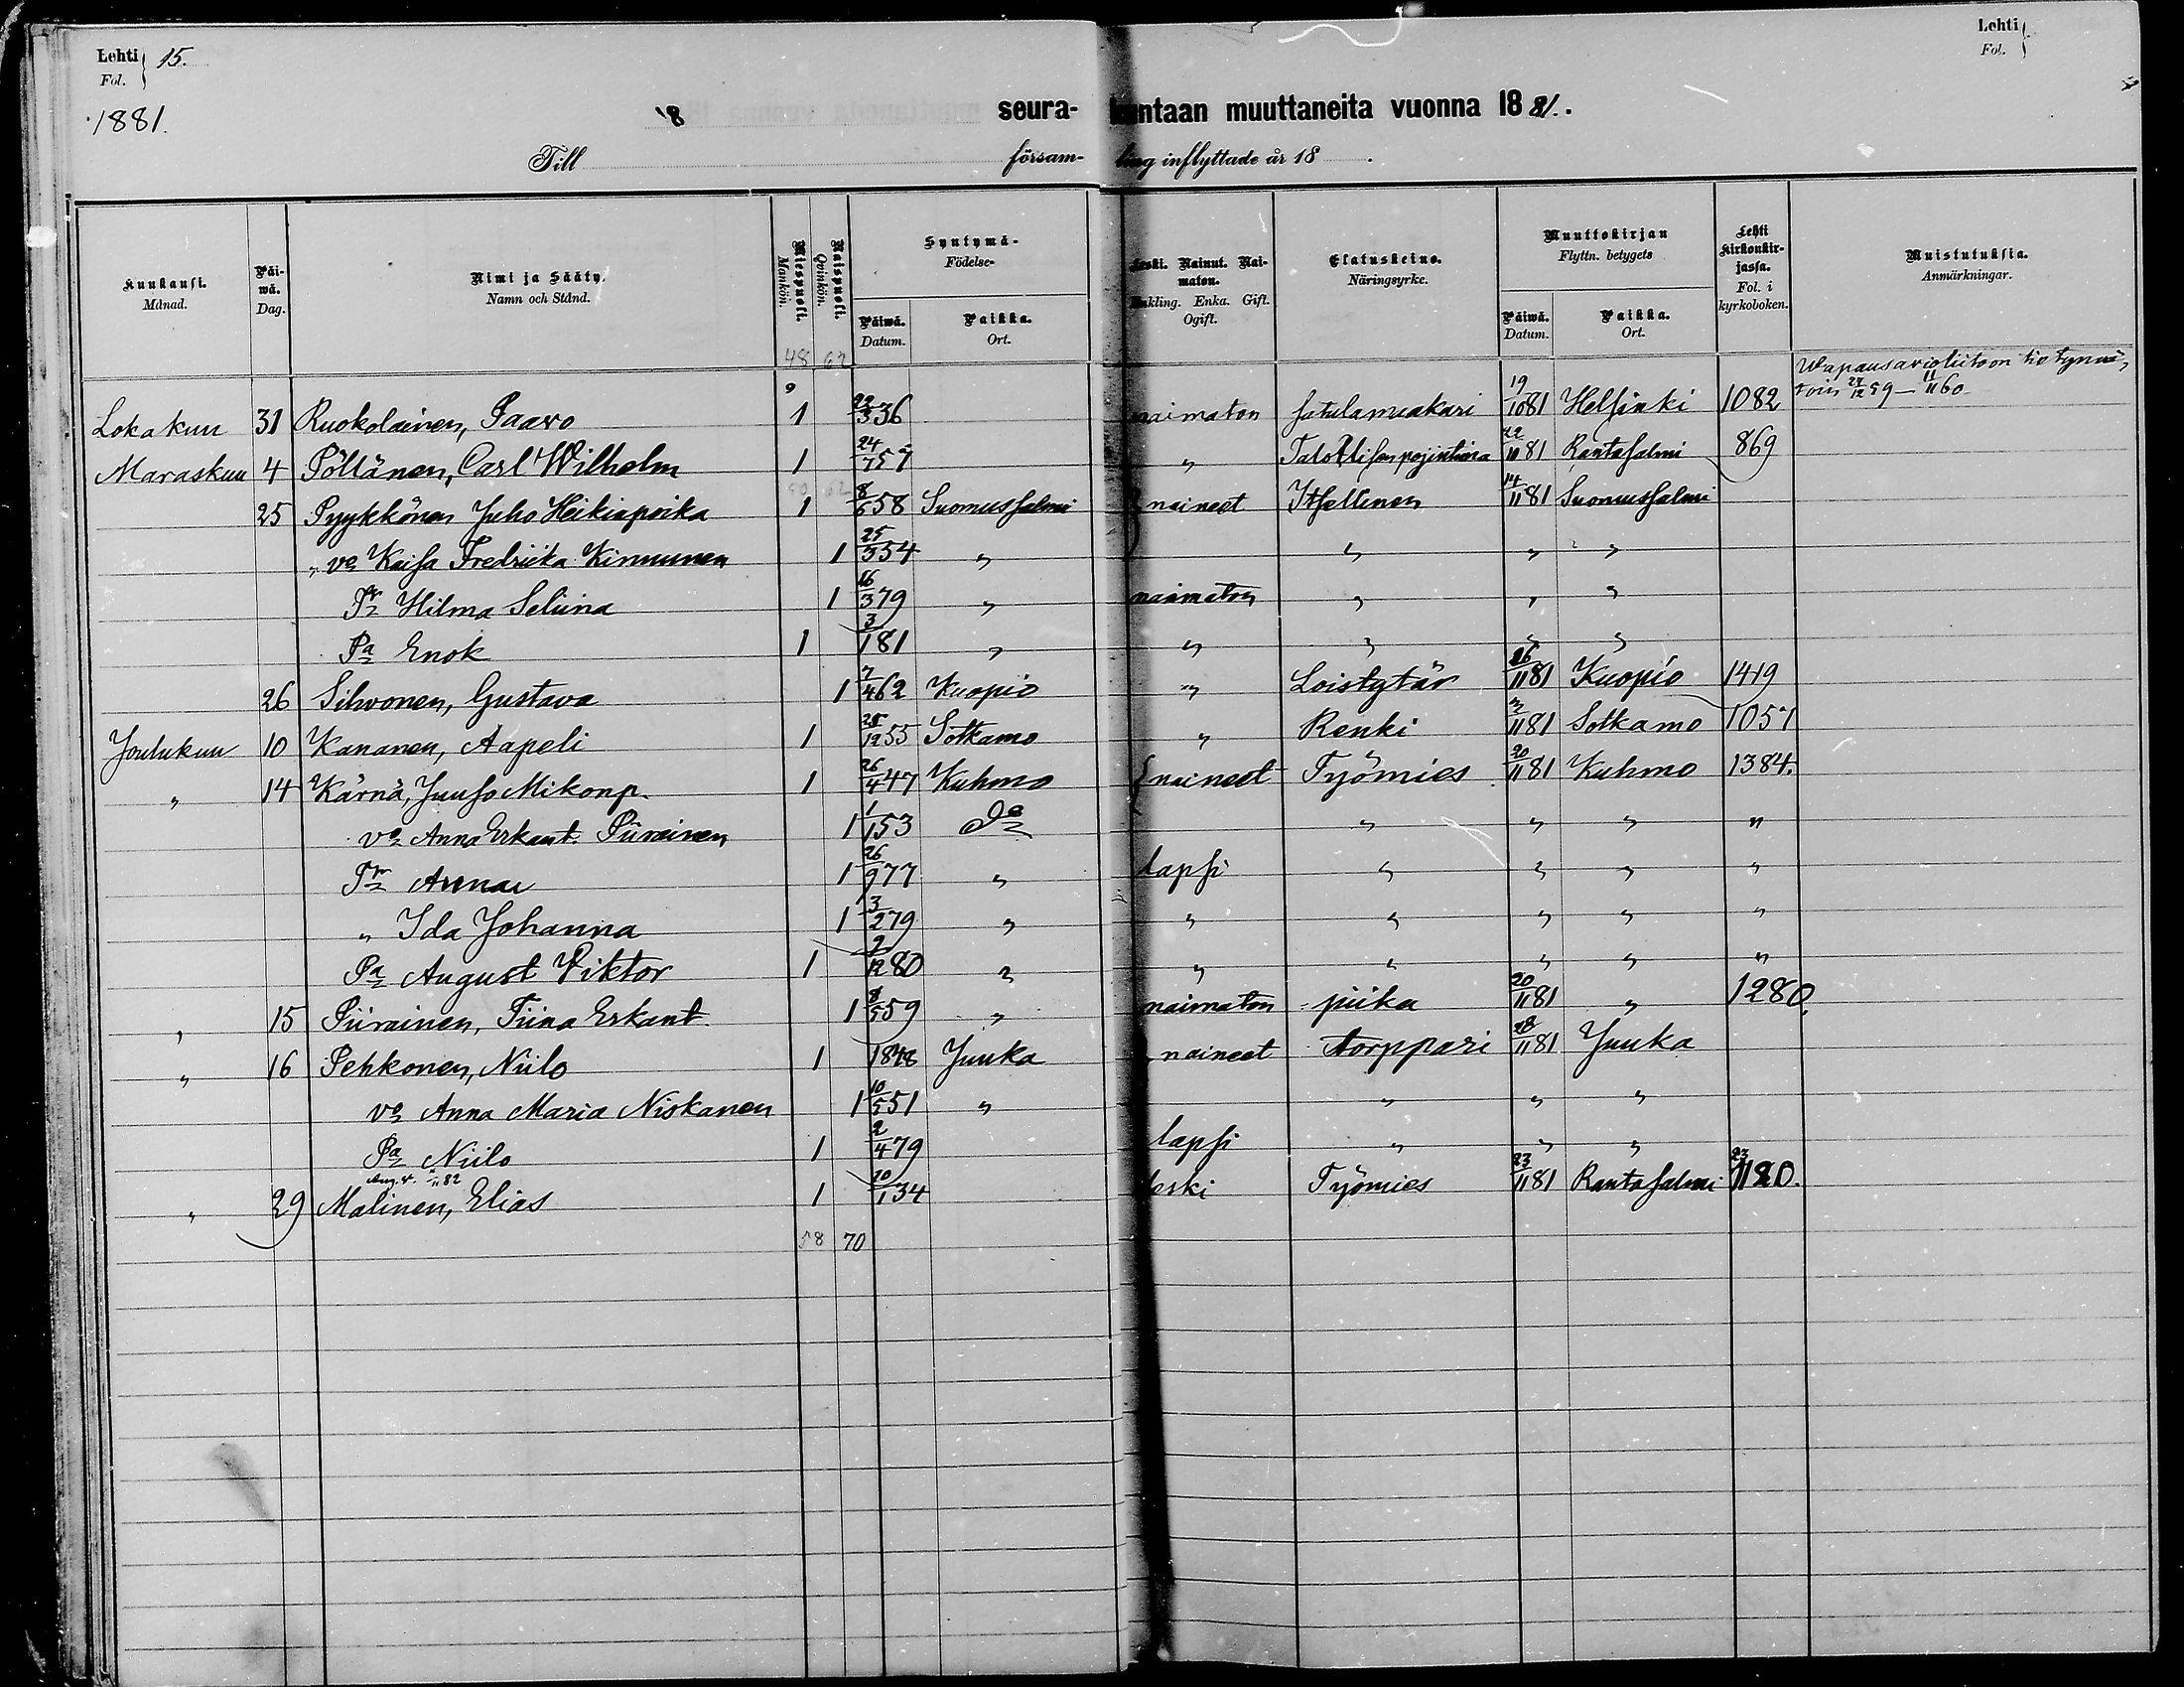 Lehti 15. Lehti
Fol. Fol.
1881. seura- kuntaan muuttaneita vuonna 1881.
Till försam- ling inflyttade år 18 .
Kuukausi. Månad. Päiwä. Dag. Nimi ja Sääty. Namn och Stånd. Miespuoli. Mankön. Naispuoli. Qvinkön. Syntymä- Födelse- Päiwä. Datum. Paikka. Ort. Leski. Nainut. Naimaton. Enkling. Enka. Gift. Ogift. Elatuskeino. Näringsyrke. Muuttokirjan Flyttn. betygets Päiwä. Datum. Paikka. Ort. Lehti kirkonkirjassa. Fol. i kyrkoboken. Muistutuksia. Anmärkningar.
48 62
Lokakuu 31 Ruokolainen, Paavo 1 22/3 36 naimaton satulamaakari 19/10 81 Helsinki 1082
Maraskuu 4 Pöllänen, Carl Wilhelm 1 24/7 57 " 22/10 81 Rantasalmi 869
25 Pyykkönen Juho Heikinpoika 1 8/6 58 Suomussalmi naineet Itsellinen 14/11 81 Suomussalmi
" vo Kaisa Fredriika Kinnunen 1 25/3 54 " " " "
Tr Hilma Seliina 1 16/3 79 " naimaton " " "
Pa Enok 1 3/1 81 " " " " "
26 Sihvonen, Gustava 1 7/4 62 Kuopio " Loistytär 26/11 81 Kuopio 1419
Joulukuu 10 Kananen, Aapeli 1 28/12 55 Sotkamo " Renki 3/11 81 Sotkamo 1057
" 14 Kärnä, Juuso Mikonp. 1 26/4 47 Kuhmo naineet Työmies 20/11 81 Kuhmo 1384.
vo Anna Erkant. Piirainen 1 1/1 53 Do " " " "
Tr Anna 1 26/9 77 " lapsi " " " "
" Ida Johanna 1 3/2 79 " " " " " "
Pa August Viktor 1 2/12 80 " " " " " "
" 15 Piirainen, Tiina Erkant. 1 8/5 59 " naimaton piika 20/11 81 " 1280.
" 16 Pehkonen, Niilo 1 1848 Juuka naineet torppari 28/11 81 Juuka
vo Anna Maria Niskanen 1 10/5 51 " " " "
Pa Niilo 1 2/4 79 lapsi " " "
" 29 Malinen, Elias 1 20/1 34 leski Työmies 23/11 81 Rantasalmi 1180.
58 70